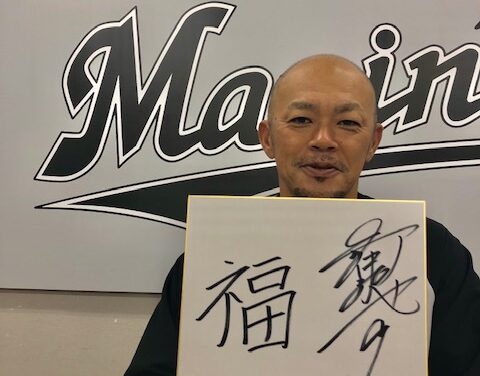 Marin
福
9